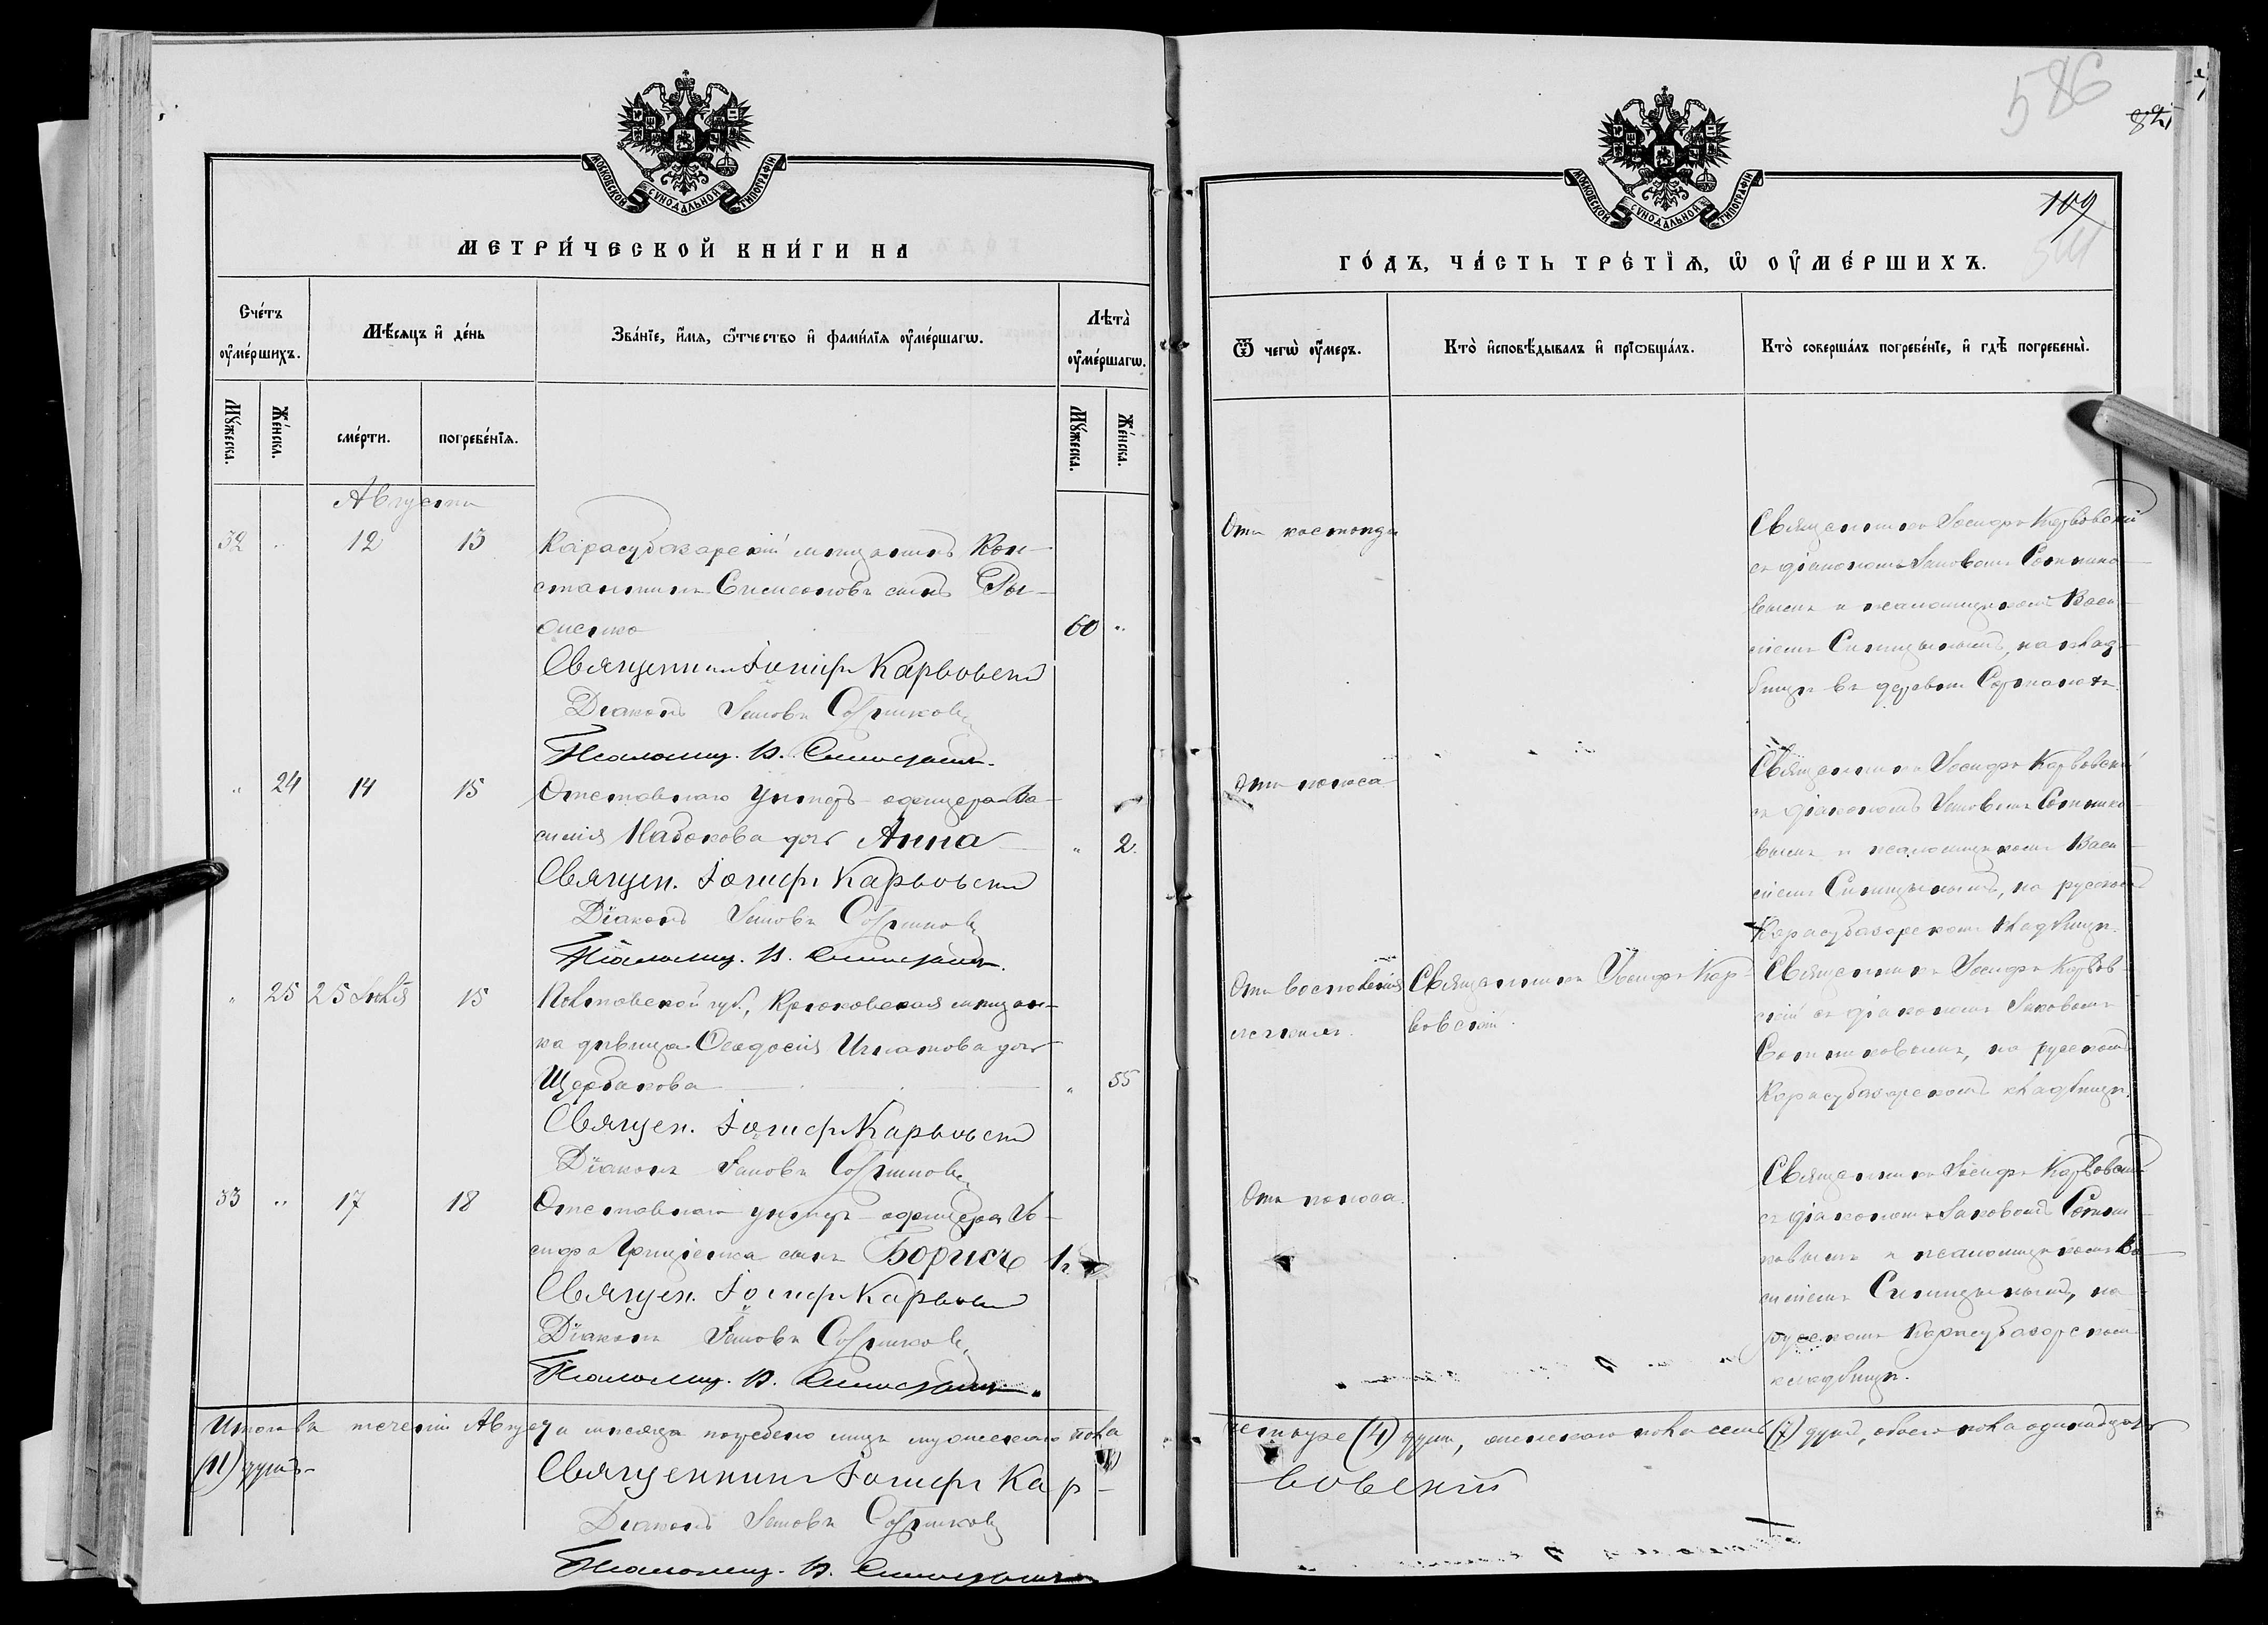 586
МОСКОВСКОЙ СУНОДАЛЬНОЙ ТИПОГРАФІИ
МЕТРИ́ЧЕСКОЙ КНИ́ГИ НА
Сче́тъ оу҆ме́ршихъ.
Мѣ́сяцъ и҆ де́нь
Зва́нїе, и҆́мѧ, ѻ҆́тчество и҆ фами́лїѧ оу҆ме́ршагѡ.
Лѣта̀ оу҆ме́ршагѡ.
Мꙋ́жеска.
Же́нска.
сме́рти.
погребе́нїѧ.
Мꙋ́жеска.
Же́нска.
Августа
32 " 12 13 Карасубазарскій мѣщанинъ Кон-
стантинъ Симеоновъ сынъ
60 "
Священникъ Іосифъ Карвовскій
Діаконъ Іаковъ Сотниковъ
Псаломщ. В.
" 24 14 15 Отставнаго унтеръ-офицера Ва-
силія Набокова дочь Анна " 2.
Священ. Іосифъ Карвовскій
Діаконъ Іаковъ Сотниковъ
Псаломщ. В.
" 25 25 Іюля 15 Полтавской губ., Крюковская мѣщан-
ка дѣвица Ѳеодосія Игнатова дочь
Щербакова " 55
Священ. Іосифъ Карвовскій
Діаконъ Іаковъ Сотниковъ
33 " 17 18 Отставнаго унтеръ-офицера Іо-
сифа сынъ Борисъ 1 г.
Священ. Іосифъ Карвовскій
Діаконъ Іаковъ Сотниковъ
Псаломщ. В.
Итого въ теченіи Августа мѣсяца погребено лицъ мужескаго пола
(11) душъ.
Священникъ Іосифъ Кар-
Діаконъ Іаковъ Сотниковъ
Псаломщ. В.
109
МОСКОВСКОЙ СУНОДАЛЬНОЙ ТИПОГРАФІИ
ГО́ДЪ, ЧА́СТЬ ТРЕ́ТІѦ, Ѡ҆ ОУ҆МЕ́РШИХЪ.
Ѿ чегѡ̀ оу҆́меръ.
Кто̀ и҆сповѣ́дывалъ и҆ прїѡбща́лъ.
Кто̀ соверша́лъ погребе́нїе, и҆ гдѣ̀ погребены̀.
Отъ костоѣда
Священникъ Іосифъ Карвовскій
съ діакономъ Іаковомъ Сотнико-
вымъ и псаломщикомъ Васи-
ліемъ Синицынымъ, на клад-
бищѣ въ деревни
Отъ поноса
Священникъ Іосифъ Карвовскій
съ діакономъ Іаковомъ Сотнико-
вымъ и псаломщикомъ Васи-
ліемъ Синицынымъ, на русскомъ
Карасубазарскомъ кладбищѣ.
Отъ воспаленія
Священникъ Іосифъ Кар-
вовскій.
Священникъ Іосифъ Карвов-
скій съ діакономъ Іаковомъ
Сотниковымъ, на русскомъ
Карасубазарскомъ кладбищѣ.
Отъ поноса.
Священникъ Іосифъ Карвовскій
съ діакономъ Іаковомъ Сотни-
ковымъ и псаломщикомъ Ва-
силіемъ Синицынымъ, на
русскомъ Карасубазарскомъ
кладбищѣ.
четыре (4) души, женскаго пола семь (7) душъ, обоего пола одинадцать
вовскій